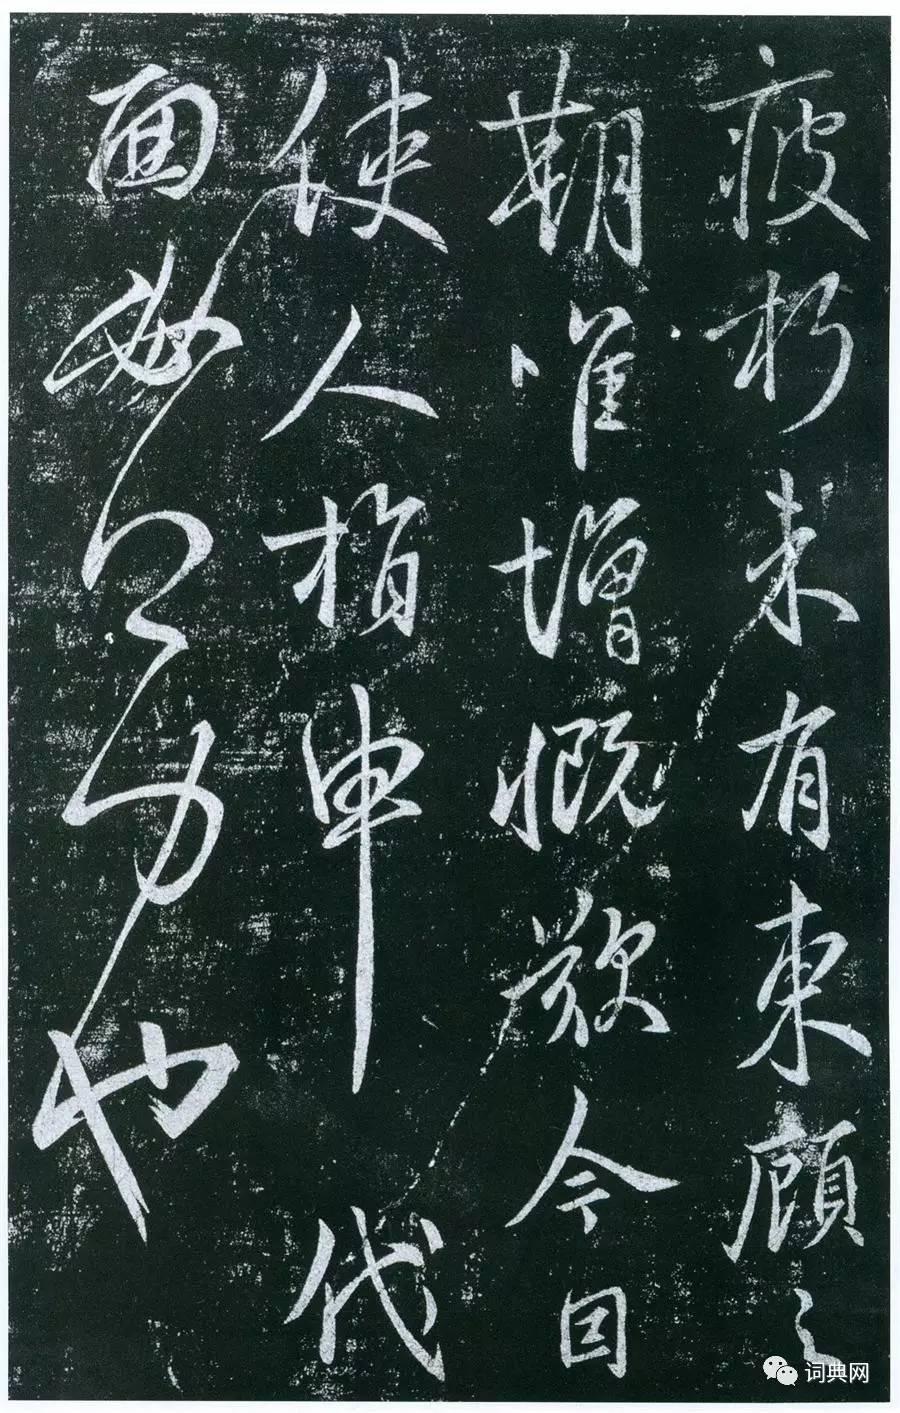 疲朽未有東顧之
期唯增慨歎今因
使人指申代
面 力也
词典网